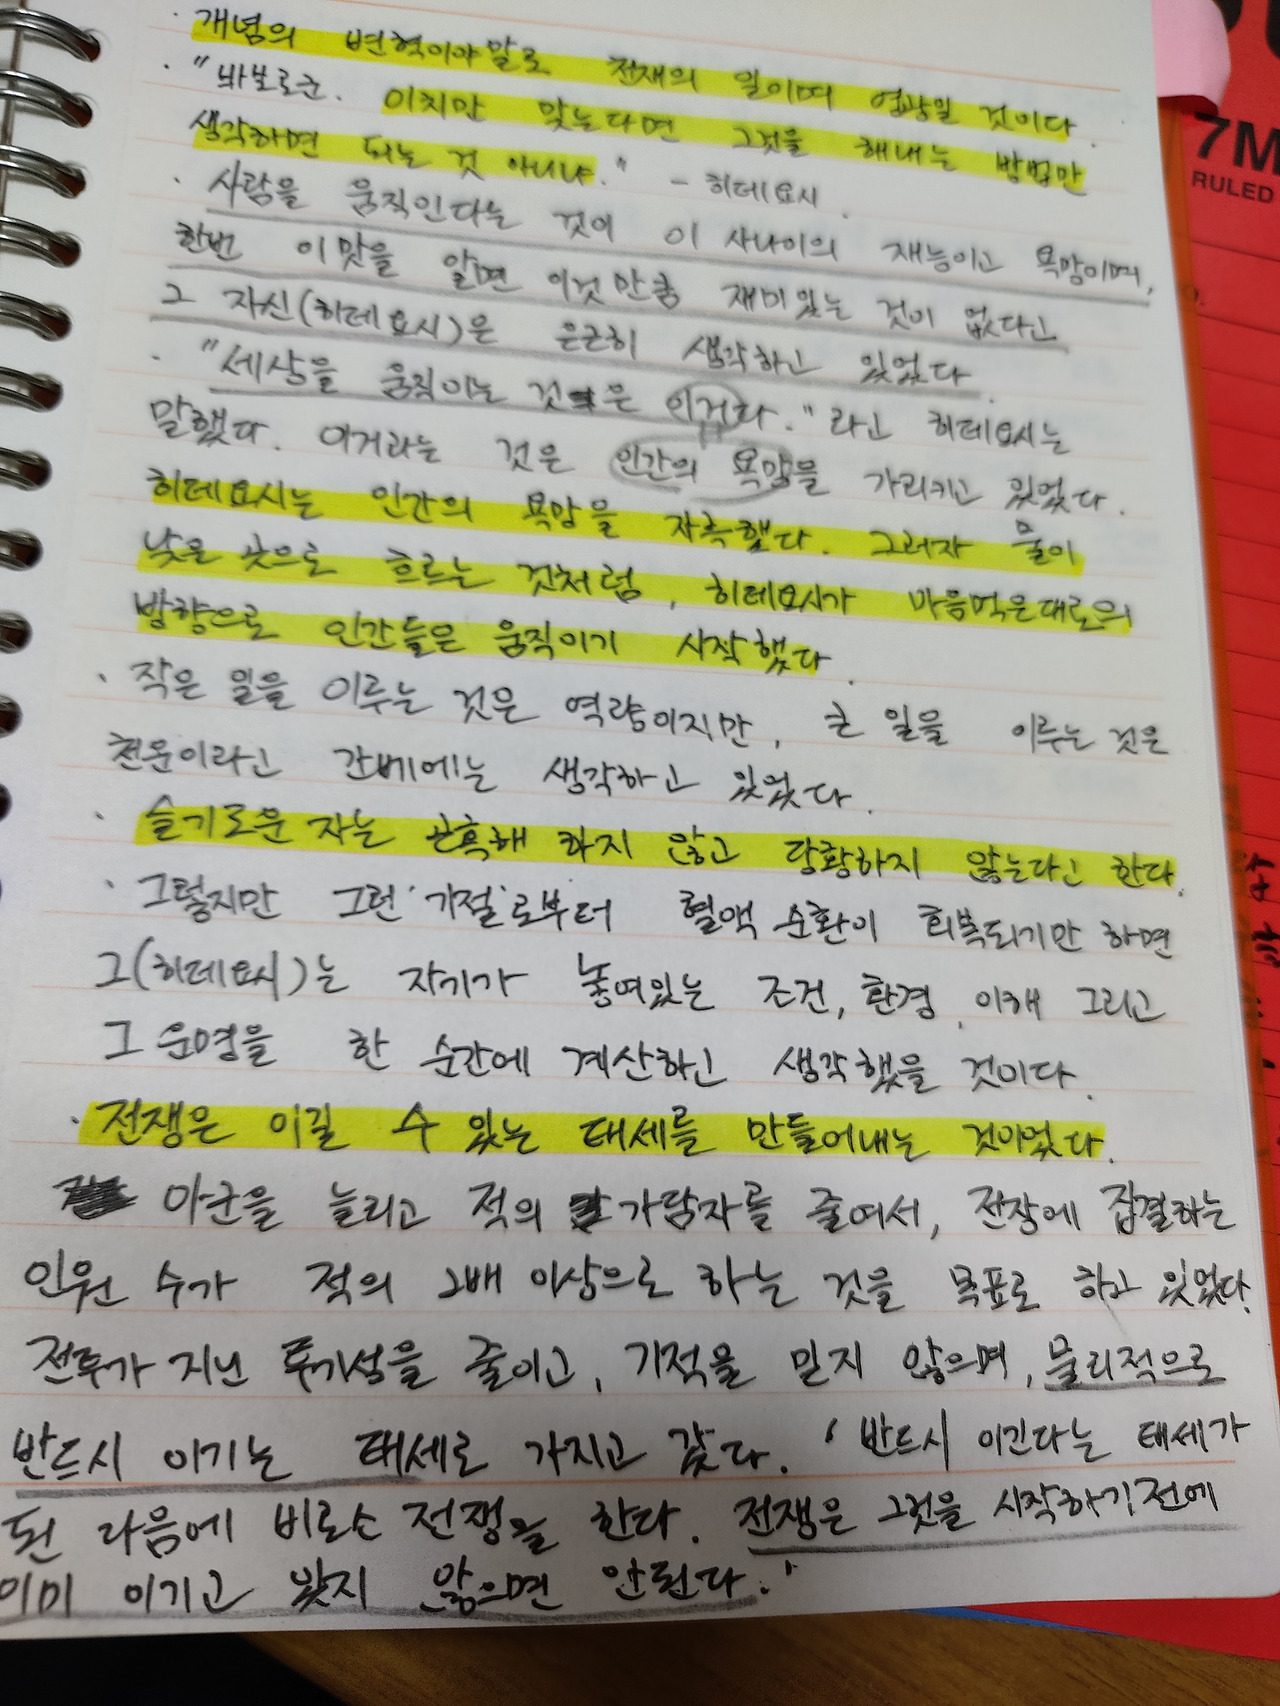 · 개념의 변혁이야말로 천재의 일이며 영광일 것이다
· "바보로군. 이치만 맞는다면 그것을 해내는 방법만
생각하면 되는 것 아니냐." - 히데요시
· 사람을 움직인다는 것이 이 사나이의 재능이고 욕망이며,
한번 이 맛을 알면 이것만큼 재미있는 것이 없다고
그 자신(히데요시)은 은근히 생각하고 있었다
· "세상을 움직이는 것은 이거다." 라고 히데요시는
말했다. 이거라는 것은 인간의 욕망을 가리키고 있었다.
히데요시는 인간의 욕망을 자극했다. 그러자 물이
낮은 곳으로 흐르는 것처럼, 히데요시가 마음먹은대로의
방향으로 인간들은 움직이기 시작했다.
· 작은 일을 이루는 것은 역량이지만, 큰 일을 이루는 것은
천운이라고 간베에는 생각하고 있었다.
· 슬기로운 자는 곤혹해 하지 않고 당황하지 않는다고 한다.
· 그렇지만 그런 '기절'로부터 혈액 순환이 회복되기만 하면
그(히데요시)는 자기가 놓여있는 조건, 환경, 이해 그리고
그 운명을 한 순간에 계산하고 생각했을 것이다.
· 전쟁은 이길 수 있는 태세를 만들어내는 것이었다.
아군을 늘리고 적의 가담자를 줄여서, 전장에 집결하는
인원 수가 적의 2배 이상으로 하는 것을 목표로 하고 있었다.
전투가 지닌 투기성을 줄이고, 기적을 믿지 않으며, 물리적으로
반드시 이기는 태세로 가지고 갔다. '반드시 이긴다는 태세가
된 다음에 비로소 전쟁을 한다. 전쟁은 그것을 시작하기 전에
이미 이기고 있지 않으면 안된다.'
7M
RULED